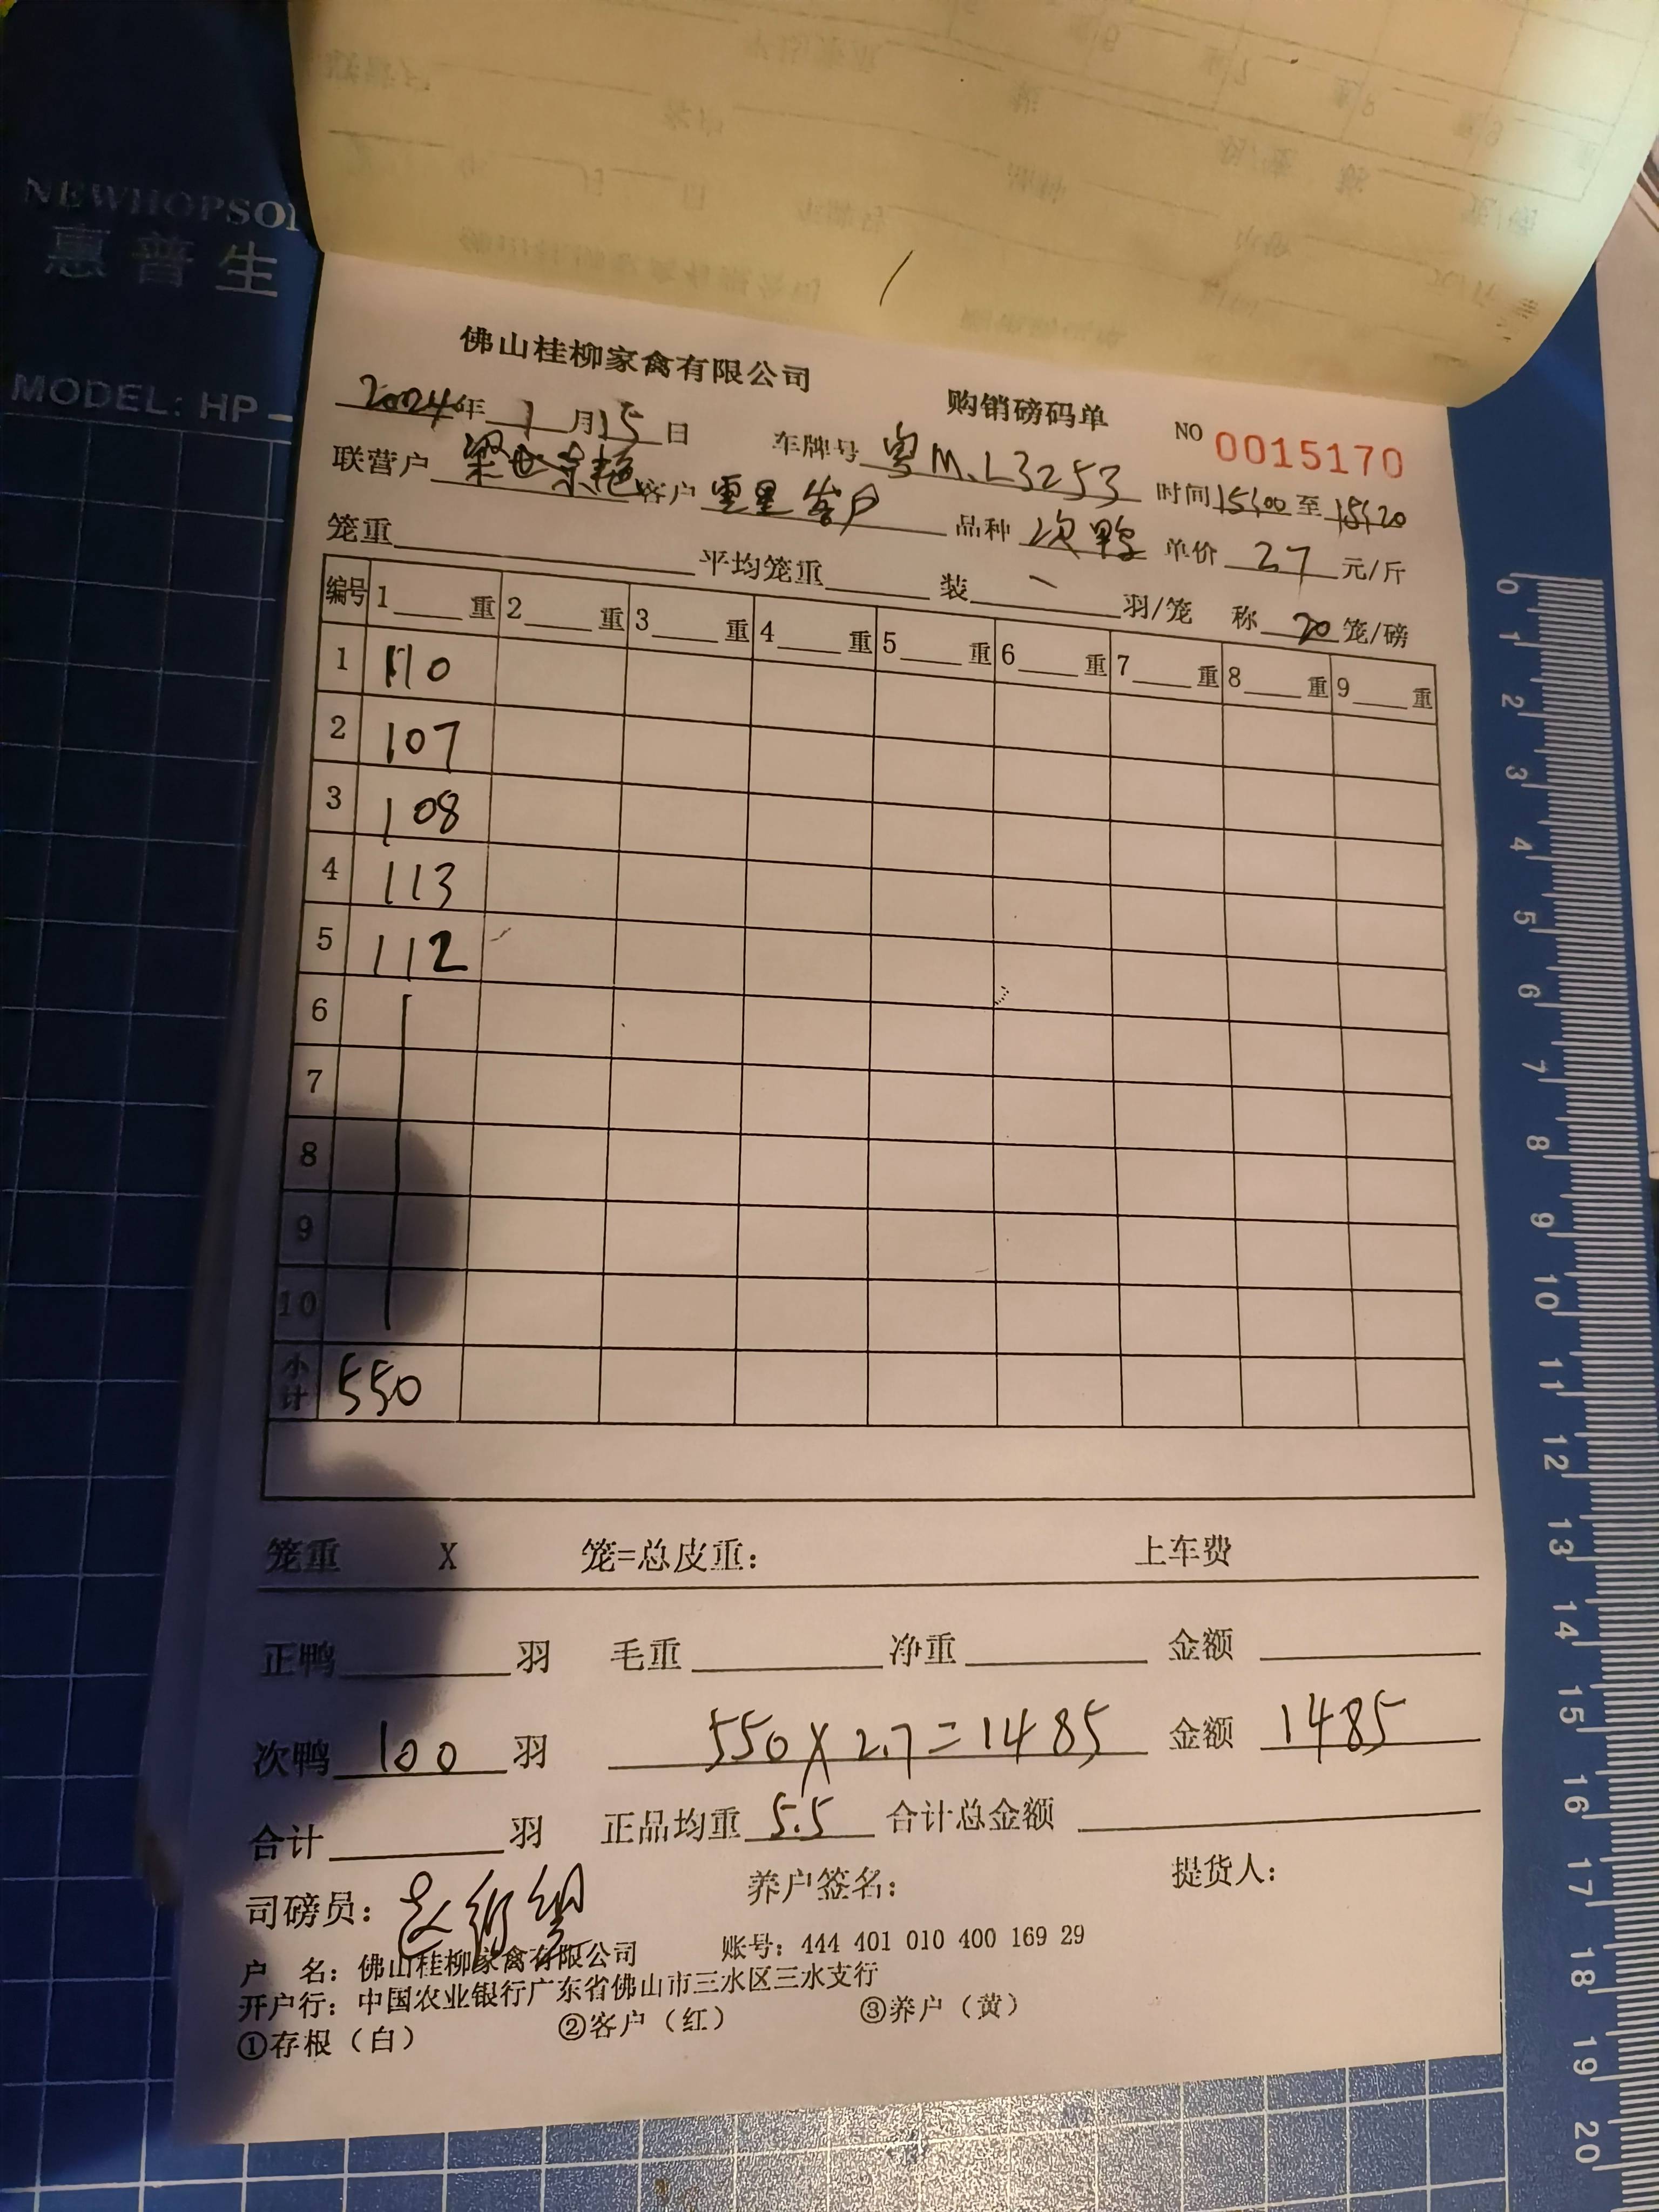 NEWHOPSON
惠普生
MODEL: HP-
佛山桂柳家禽有限公司 购销磅码单 NO 0015170
2024年 1月15日 车牌号 粤M.L3253 时间 15:00 至 15:20
联营户 客户 重量客户 品种 次鸭 单价 2.7 元/斤
笼重 平均笼重 装 羽/笼 称 20 笼/磅
编号 1 重 2 重 3 重 4 重 5 重 6 重 7 重 8 重 9 重
1 110
2 107
3 108
4 113
5 112
6
7
8
9
10
小计 550
笼重 X 笼=总皮重: 上车费
正鸭 羽 毛重 净重 金额
次鸭 100 羽 550X2.7=1485 金额 1485
合计 羽 正品均重 5.5 合计总金额
司磅员: 养户签名: 提货人:
户 名: 佛山桂柳家禽有限公司 账号: 444 401 010 400 169 29
开户行: 中国农业银行广东省佛山市三水区三水支行
①存根(白) ②客户(红) ③养户(黄)
0
1
2
3
4
5
6
7
8
9
10
11
12
13
14
15
16
17
18
19
20